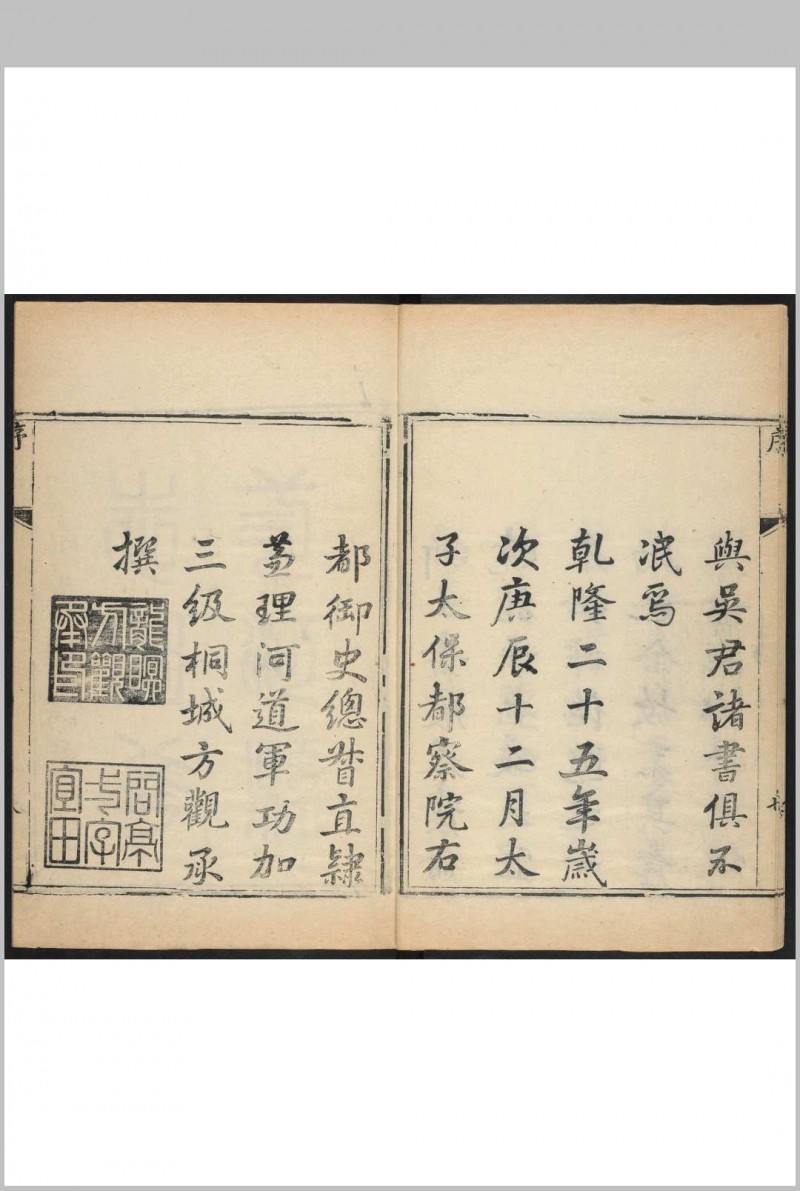 與吳君諸書俱不
泯焉
乾隆二十五年歲
次庚辰十二月太
子太保都察院右
都御史總督直隸
兼理河道軍功加
三級桐城方觀承
撰
序
序
宜田